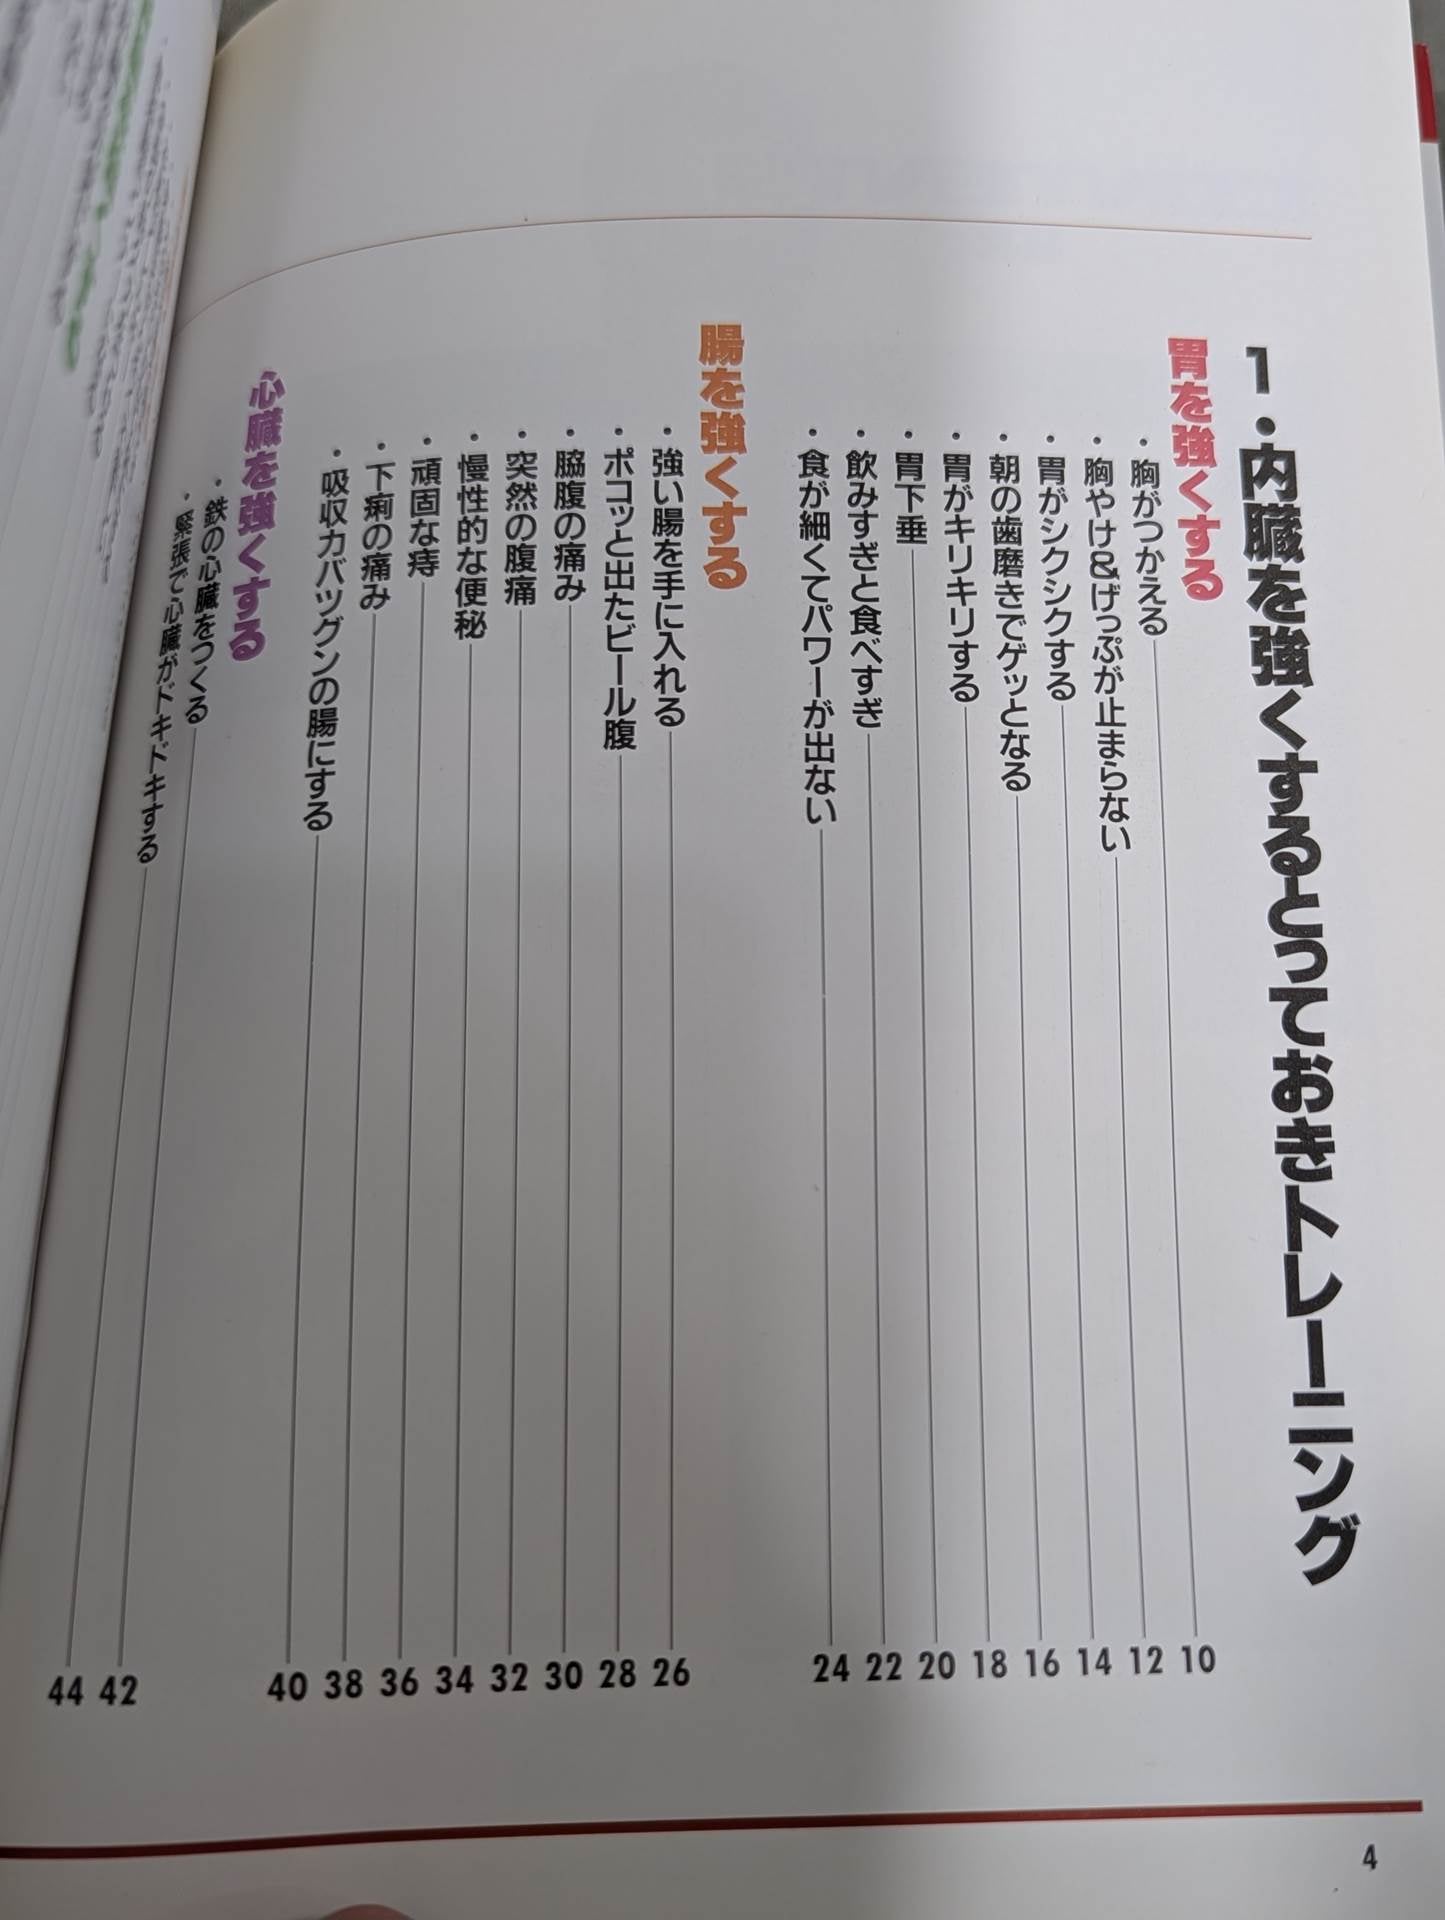 1・内臓を強くするとっておきトレーニング
胃を強くする
・胸がつかえる 10
・胸やけ&げっぷが止まらない 12
・胃がシクシクする 14
・朝の歯磨きでゲッとなる 16
・胃がキリキリする 18
・胃下垂 20
・飲みすぎと食べすぎ 22
・食が細くてパワーが出ない 24
腸を強くする
・強い腸を手に入れる 26
・ポコッと出たビール腹 28
・脇腹の痛み 30
・突然の腹痛 32
・慢性的な便秘 34
・頑固な痔 36
・下痢の痛み 38
・吸収力バツグンの腸にする 40
心臓を強くする
・鉄の心臓をつくる 42
・緊張で心臓がドキドキする 44
4